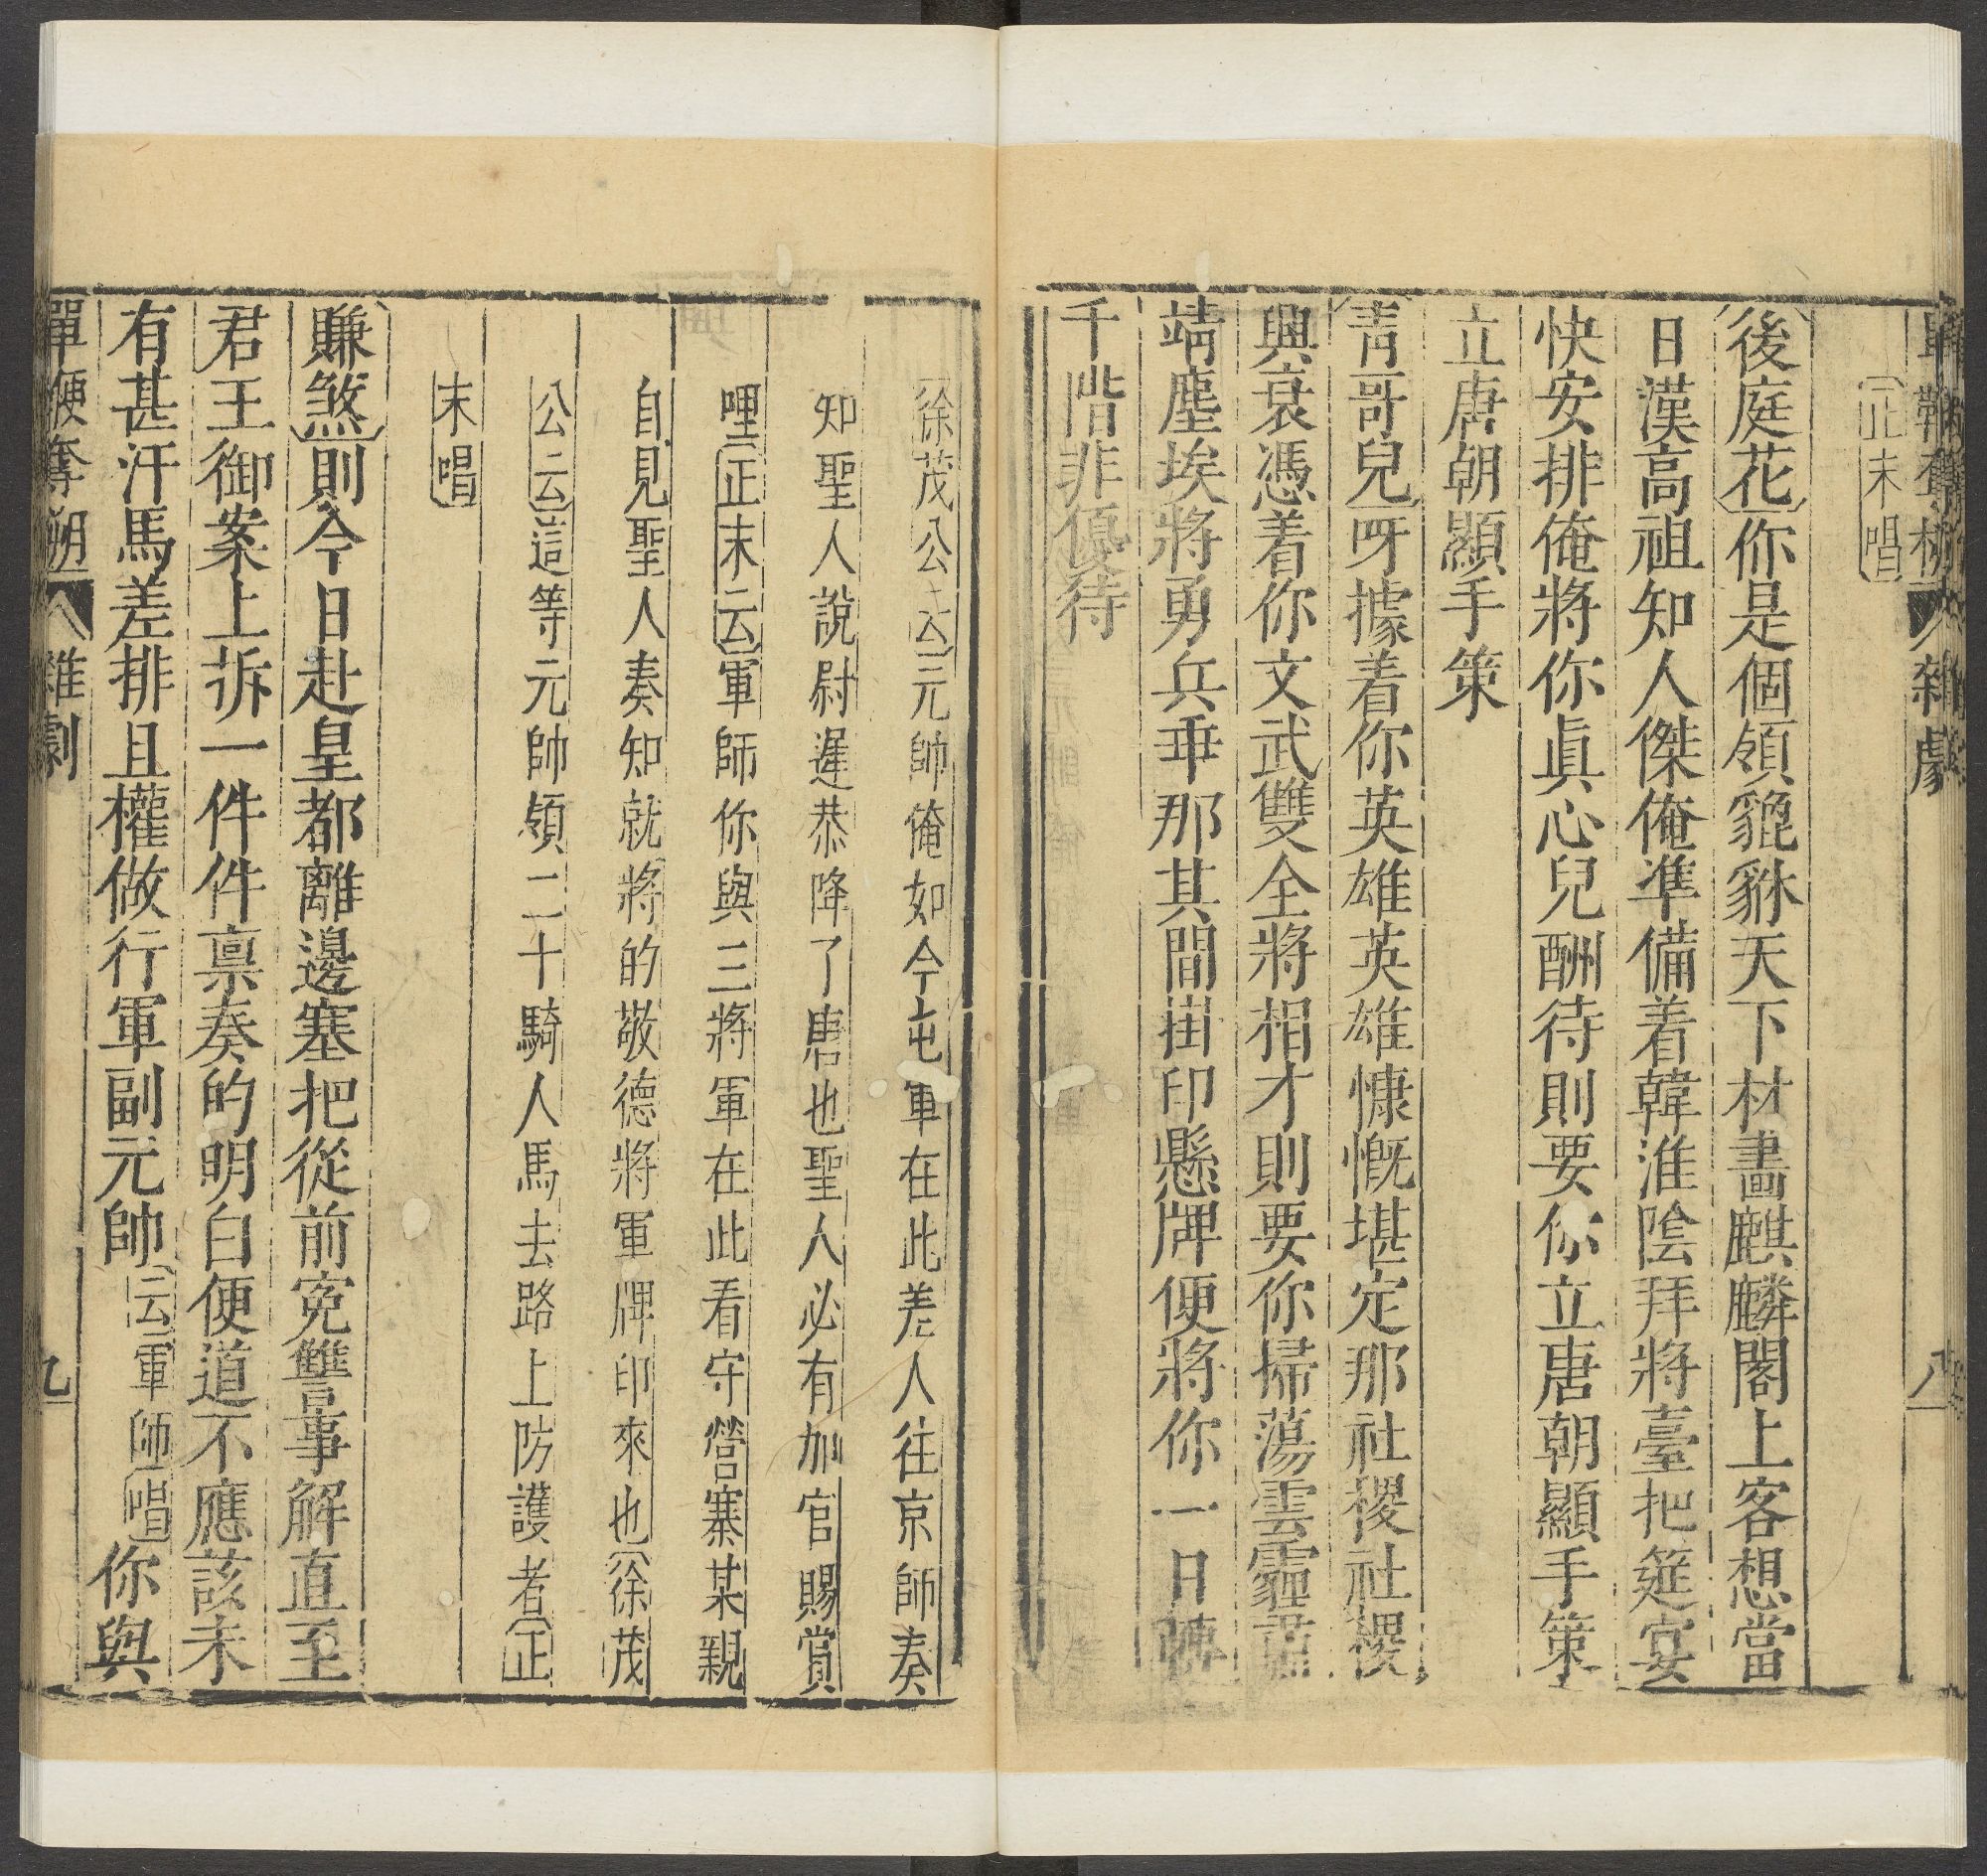 單鞭奪槊 雜劇 八
〔正末唱〕
〔後庭花〕你是個領貔貅天下材畫麒麟閣上客想當
日漢高祖知人傑俺準備着韓淮陰拜將臺把筵宴
快安排俺將你真心兒酬待則要你立唐朝顯手策
立唐朝顯手策
〔青哥兒〕呀據着你英雄英雄慷慨堪定那社稷社稷
興衰憑着你文武雙全將相才則要你掃蕩雲霾肅
靖塵埃將勇兵乖那其間掛印懸牌便將你一日轉
千階非優待
〔徐茂公云〕元帥俺如今屯軍在此差人往京師奏
知聖人說尉遲恭降了唐也聖人必有加官賜賞
哩〔正末云〕軍師你與三將軍在此看守營寨某親
自見聖人奏知就將的敬德將軍牌印來也〔徐茂
公云〕這等元帥領二十騎人馬去路上防護者〔正
末唱〕
〔賺煞〕則今日赴皇都離邊塞把從前冤讐事解直至
君王御案上拆一件件稟奏的明白便道不應該未
有甚汗馬差排且權做行軍副元帥〔云〕軍師〔唱〕你與
單鞭奪槊 雜劇 九